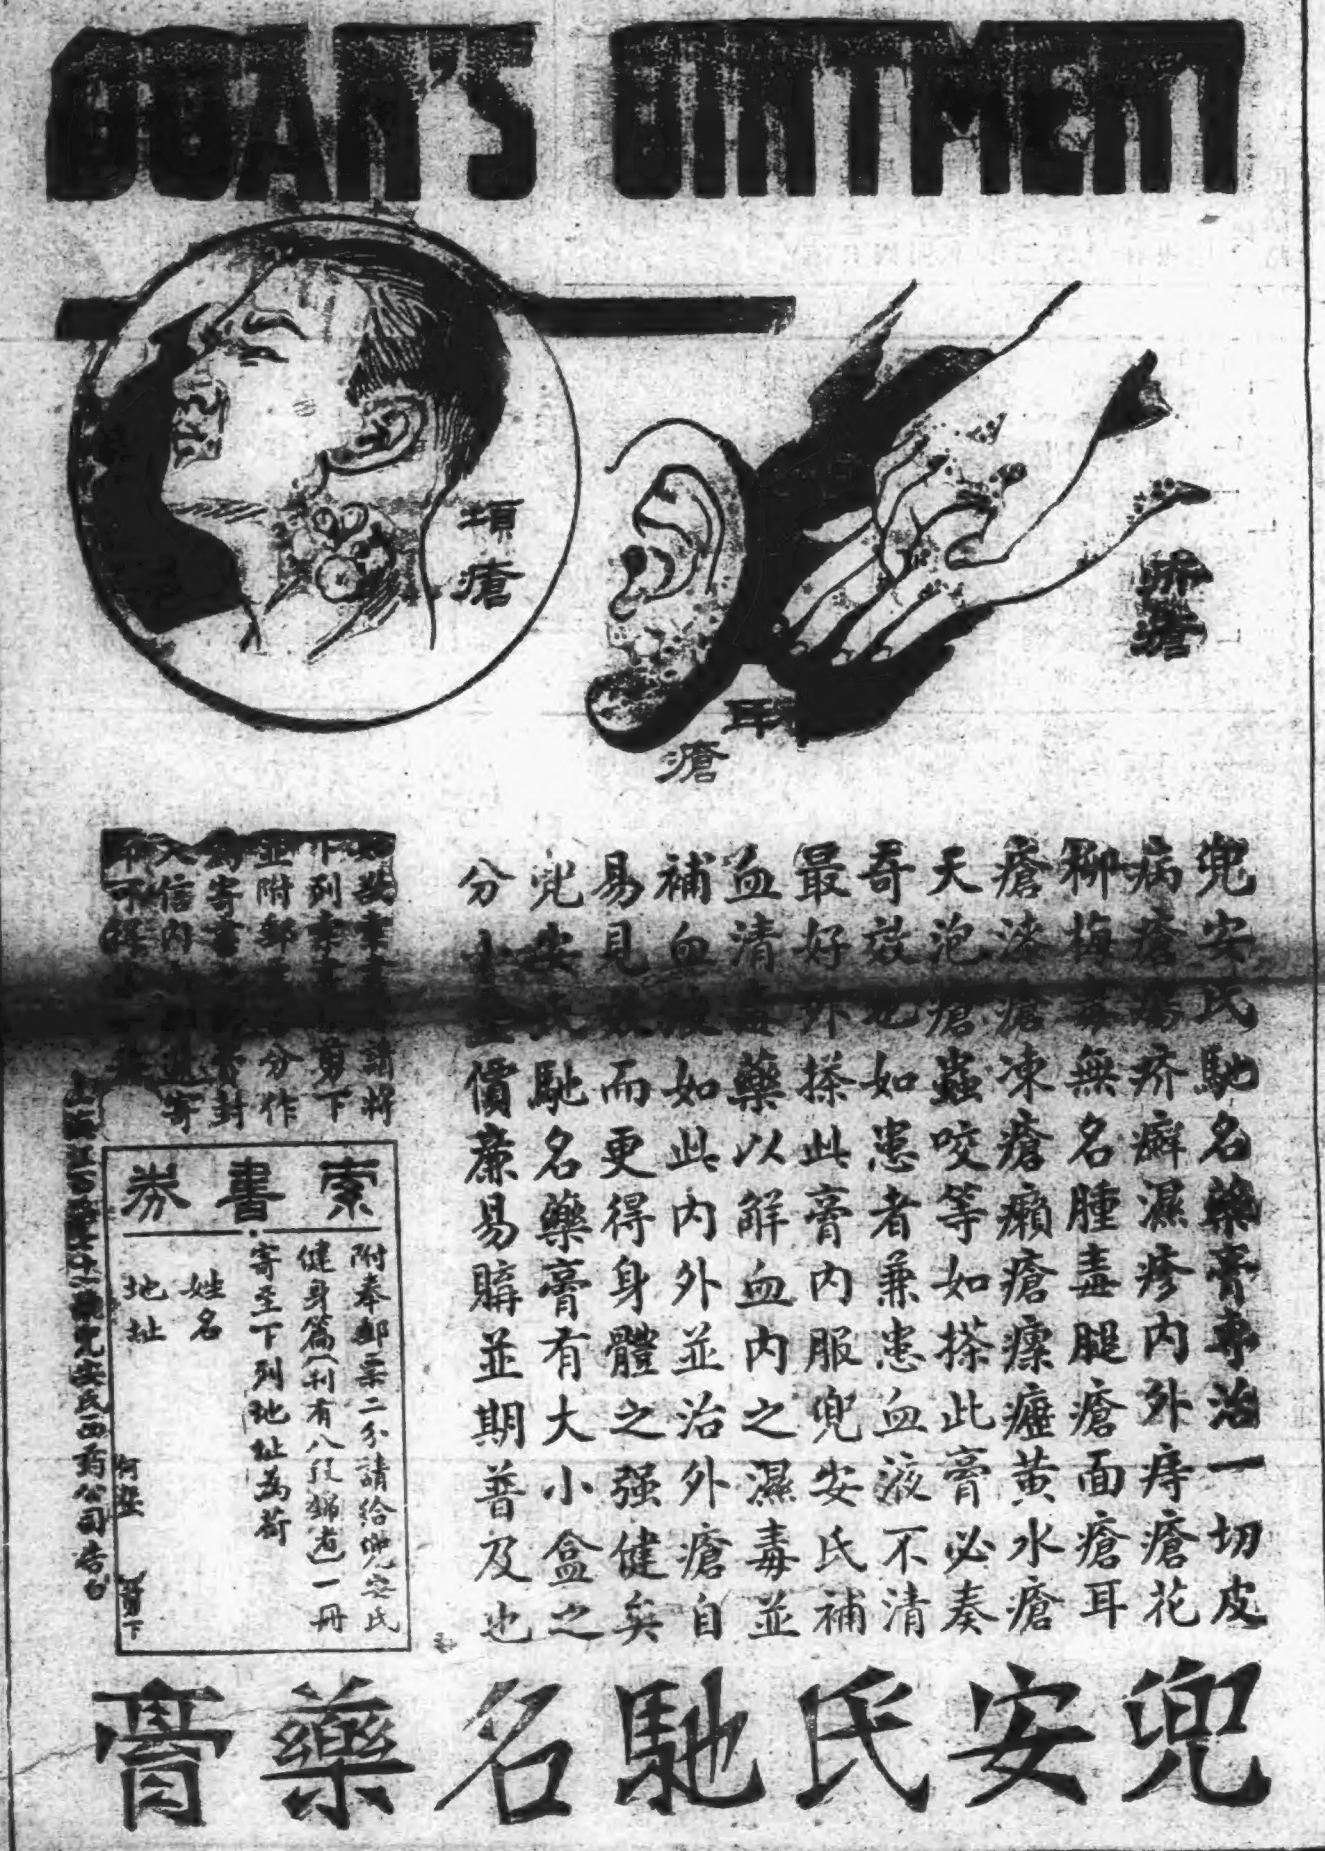 DOAN'S OINTMENT
項瘡
耳瘡
疥瘡
兜安氏馳名藥膏專治一切皮
病瘡瘍疥癬濕疹內外痔瘡花
柳梅毒無名腫毒腿瘡面瘡耳
瘡漆瘡凍瘡癩瘡瘰癧黃水瘡
天泡瘡蟲咬等如搽此膏必奏
奇效也如患者兼患血液不清
最好外搽此膏內服兜安氏補
血清毒藥以解血內之濕毒並
補血液如此內外並治外瘡自
易見效而更得身體之强健矣
兜安氏馳名藥膏有大小盒之
分小盒價廉易購並期普及也
請將
下列剪下
並附郵分作
為寄書封
入信內寄
不可
索書券
附奉郵票二分請給兜安氏
健身篇(刊有八段錦者)一冊
寄至下列地址為荷
姓名
地址
剪下
兜安氏西葯公司告白
兜安氏馳名藥膏